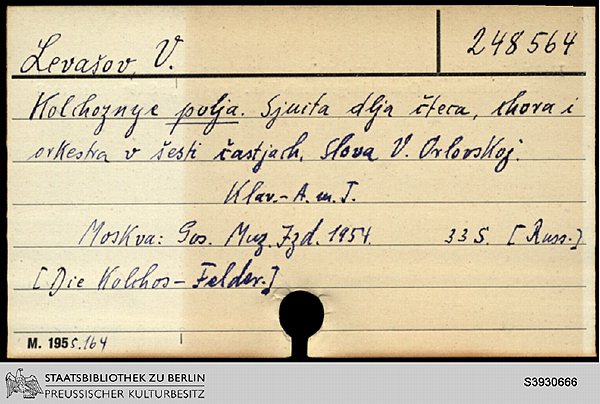 Levašov, V.
248564
Kolchoznye polja. Sjuita dlja čteca, chora i
orkestra v šesti častjach. Slova V. Orlovskoj.
Klav.-A. m. T.
Moskva: Gos. Muz. Izd. 1954. 33 S. [Russ.]
[Die Kolchos-Felder.]
M. 1955.164
STAATSBIBLIOTHEK ZU BERLIN
PREUSSISCHER KULTURBESITZ
S3930666